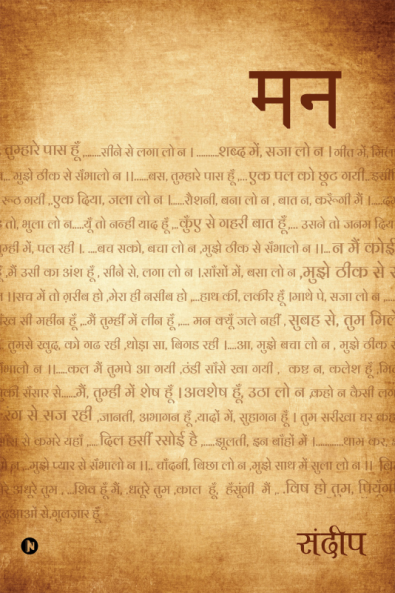 मन
तुम्हारे पास हूँ ,.......सीने से लगा लो न । .........शब्द में, सजा लो न । गीत में,
मुझे ठीक से सँभालो न ।।.....बस, तुम्हारे पास हूँ ,... एक पल को छूट गयी...
रूठ गयी ,.एक दिया, जला लो न ।....रौशनी, बना लो न , बात न, करूँगी मैं ।
तो, भुला लो न....यूँ तो नन्ही याद हूँ ,.. कुँए से गहरी बात हूँ ,... उसने तो जनम दिया
तुम्ही में, पल रही । ....बच सको, बचा लो न ,मुझे ठीक से सँभालो न ।।... न मैं कोई
,मैं उसी का अंश हूँ , सीने से, लगा लो न ।.साँसों में, बसा लो न ,मुझे ठीक से
।।सच में तो ग़रीब हो ,मेरा ही नसीब हो ,...हाथ की, लकीर हूँ ।माथे पे, सजा लो न
सी महीन हूँ ,..मैं तुम्हीं में लीन हूँ ,.... मन क्यूँ जले नहीं , सुबह से, तुम मिले
तुमसे खुद, को गढ रही ,थोड़ा सा, बिगड रही ।....आ, मुझे बचा लो न , मुझे ठीक
सँभालो न ।।....कल मैं तुमपे आ गयी ,ठंडी साँसे खा गयी , कष्ट न, कलेश हूँ
की संसार से.....मैं, तुम्ही में शेष हूँ ।अवशेष हूँ, उठा लो न ,कहो न कैसी
रंग से सज रही ,जानती, अभागन हूँ ,यादों में, सुहागन हूँ । तुम सरीखा घर
से कमरे यहाँ ,....दिल हसीं रसोई है ,....झूलती, इन बाँहों में ।...........थाम कर,
न ,..मुझे प्यार से सँभालो न ।।.. चाँदनी, बिछा लो न ,मुझे साथ में सुला लो न ।।
अधूरे तुम , ..शिव हूँ मैं, ,धतूरे तुम ,काल हूँ, हँसूंगी मैं ,..विष हो तुम,
से,गुलज़ार हूँ
N
संदीप